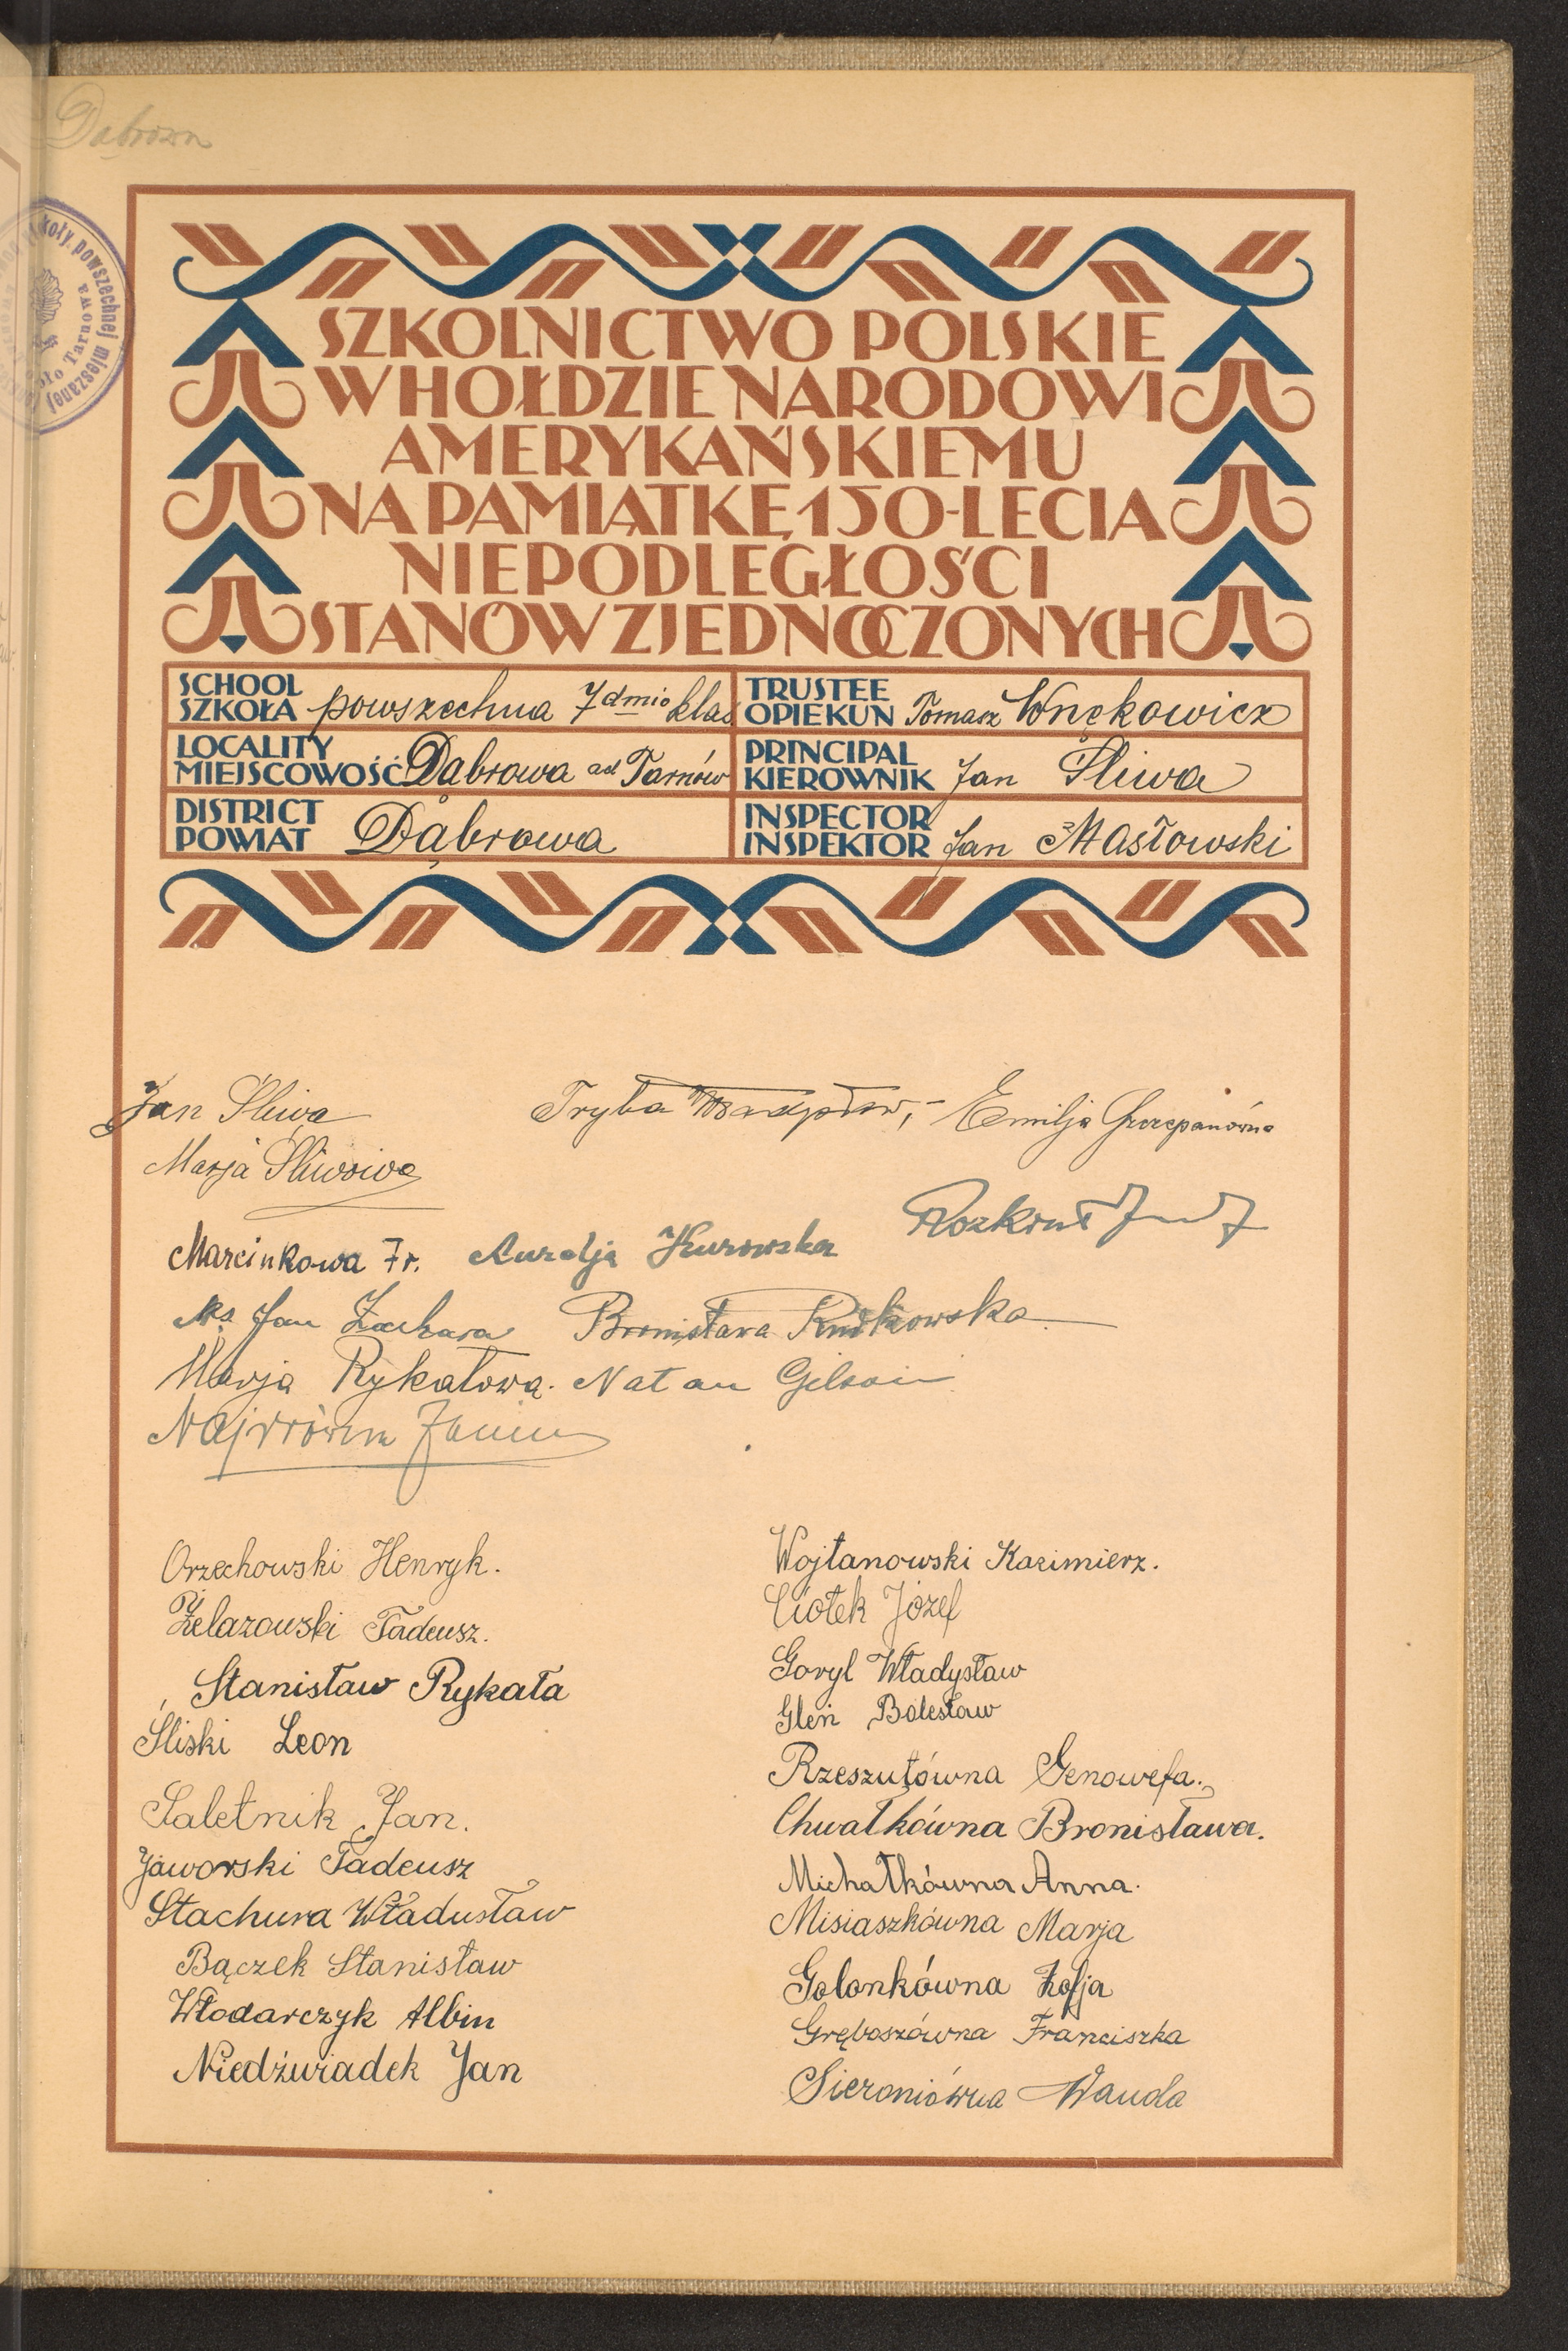 Dąbrowa
koły powszechnej mieszanej
oło Tarnowa
SZKOLNICTWO POLSKIE
W HOŁDZIE NARODOWI
AMERYKAŃSKIEMU
NA PAMIĄTKĘ 150-LECIA
NIEPODLEGŁOŚCI
STANÓW ZJEDNOCZONYCH
SCHOOL
SZKOŁA powszechna 7dmio klas
TRUSTEE
OPIEKUN Tomasz Wnękowicz
LOCALITY
MIEJSCOWOŚĆ Dąbrowa ad Tarnów
PRINCIPAL
KIEROWNIK Jan Śliwa
DISTRICT
POWIAT Dąbrowa
INSPECTOR
INSPEKTOR Jan Masłowski
Jan Śliwa Tryba Władysław, Emilja
Marja Śliwowa
Marcinkowa Fr. Aurelja Kurowska
Ks. Jan Zachara Bronisława Rutkowska
Marja Rykałowa. Natan
Janina
Orzechowski Henryk.
Żelazowski Tadeusz.
Stanisław Rykała
Śliski Leon
Saletnik Jan.
Jaworski Tadeusz
Stachura Władusław
Bączek Stanisław
Włodarczyk Albin
Niedźwiadek Jan
Wojtanowski Kazimierz.
Ciołek Józef
Goryl Władysław
Gleń Bolesław
Rzeszutówna Genowefa.
Chwałkówna Bronisława.
Michałkówna Anna.
Misiaszkówna Marja
Golonkówna Zofja
Gręboszówna Franciszka
Sieroniówna Wanda